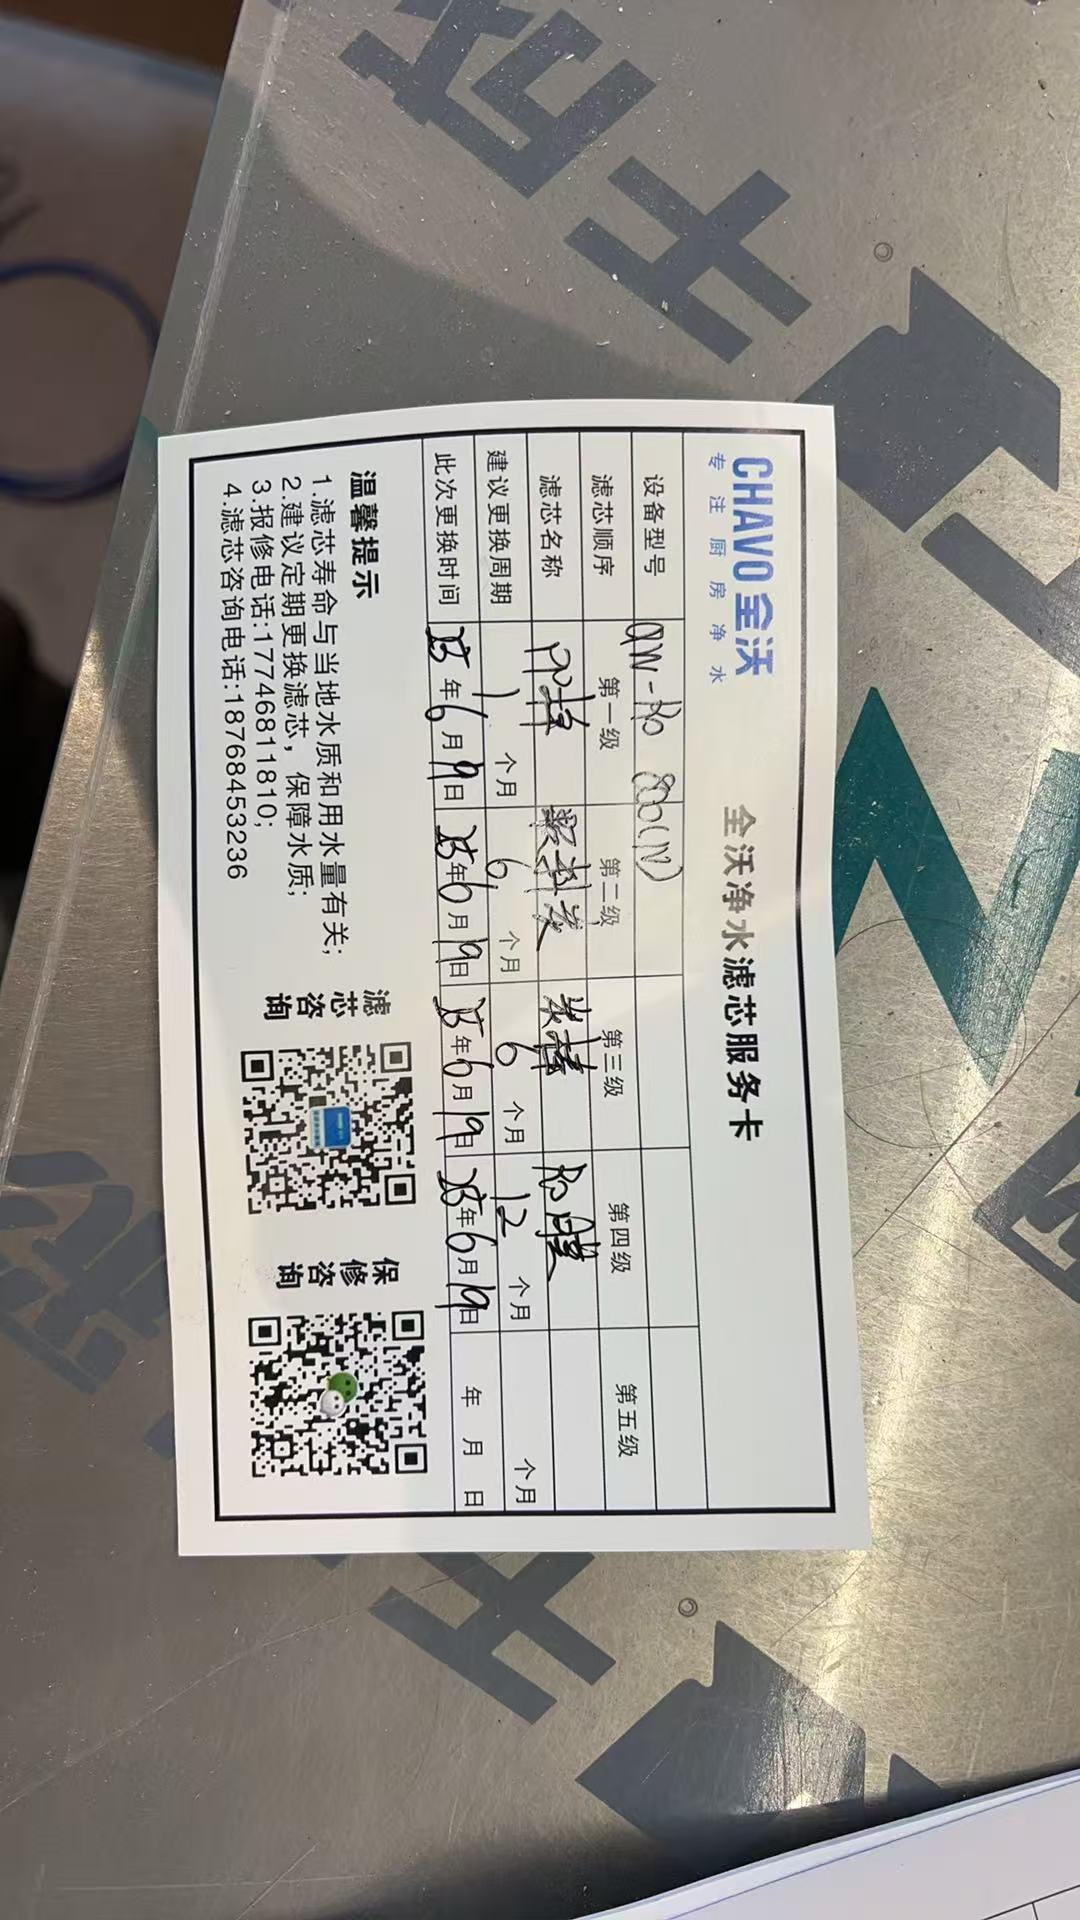 CHAVO 全沃
专注厨房净水
全沃净水滤芯服务卡
设备型号 QW-Ro 800(N)
滤芯顺序 第一级 第二级 第三级 第四级 第五级
滤芯名称 PP棒 颗粒炭 炭棒 Ro膜
建议更换周期 1个月 6个月 6个月 12个月 个月
此次更换时间 25年6月19日 25年6月19日 25年6月19日 25年6月19日 年 月 日
温馨提示
1.滤芯寿命与当地水质和用水量有关;
2.建议定期更换滤芯,保障水质;
3.报修电话:17746811810;
4.滤芯咨询电话:18768453236
滤芯咨询
保修咨询